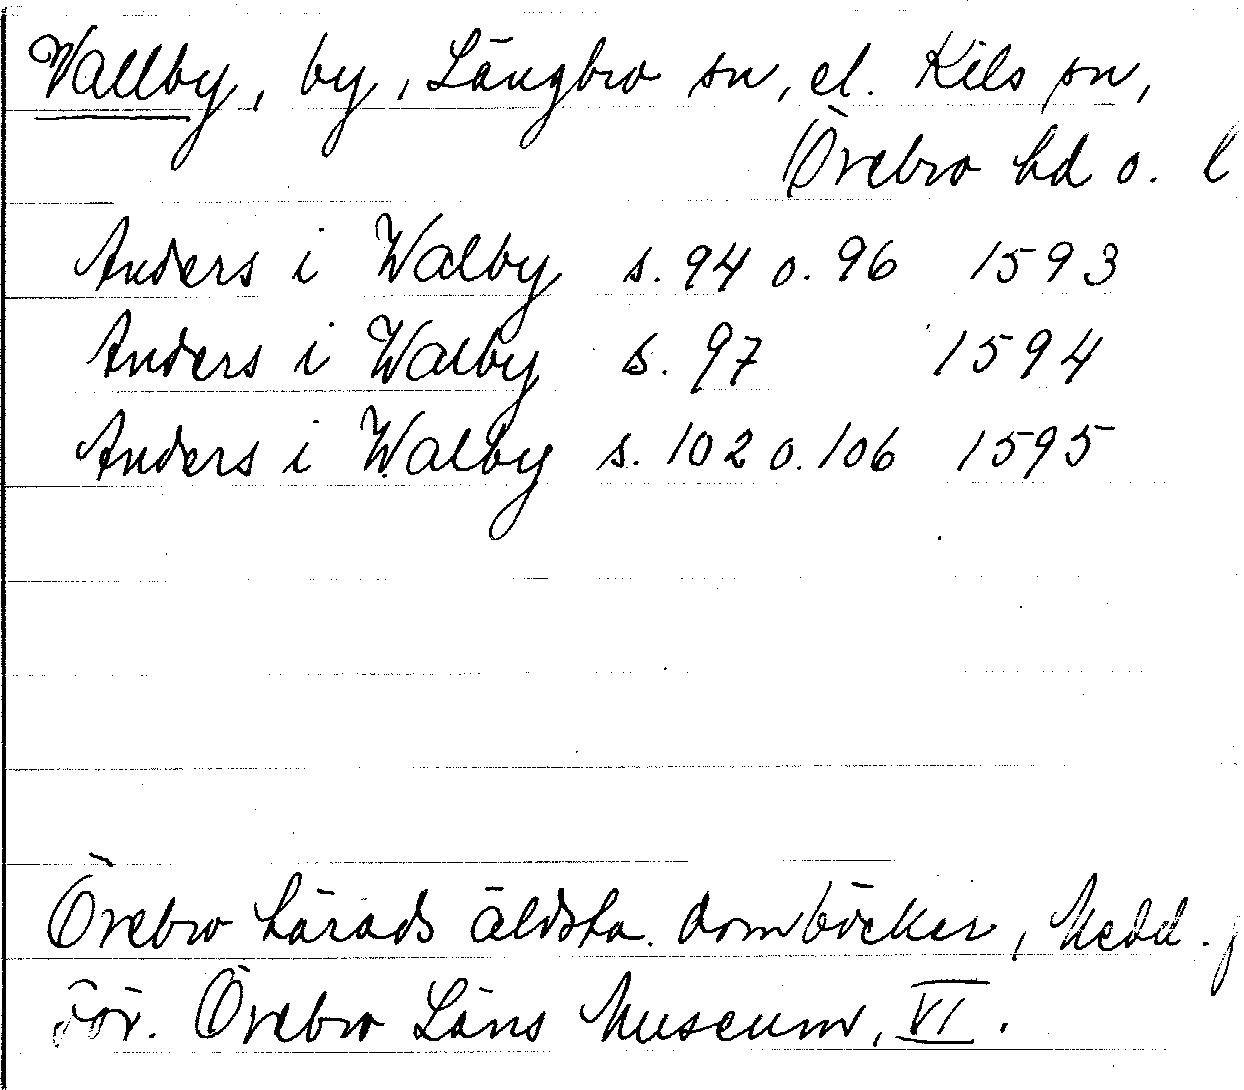 Vallby, by, Längbro sn, el. Kils sn,
Örebro hd o. l
Anders i Walby s. 94 o. 96 1593
Anders i Walby s. 97 1594
Anders i Walby s. 102 o. 106 1595
Örebro härads äldsta domböcker, Medd. f
För. Örebro Läns Museum, VI.